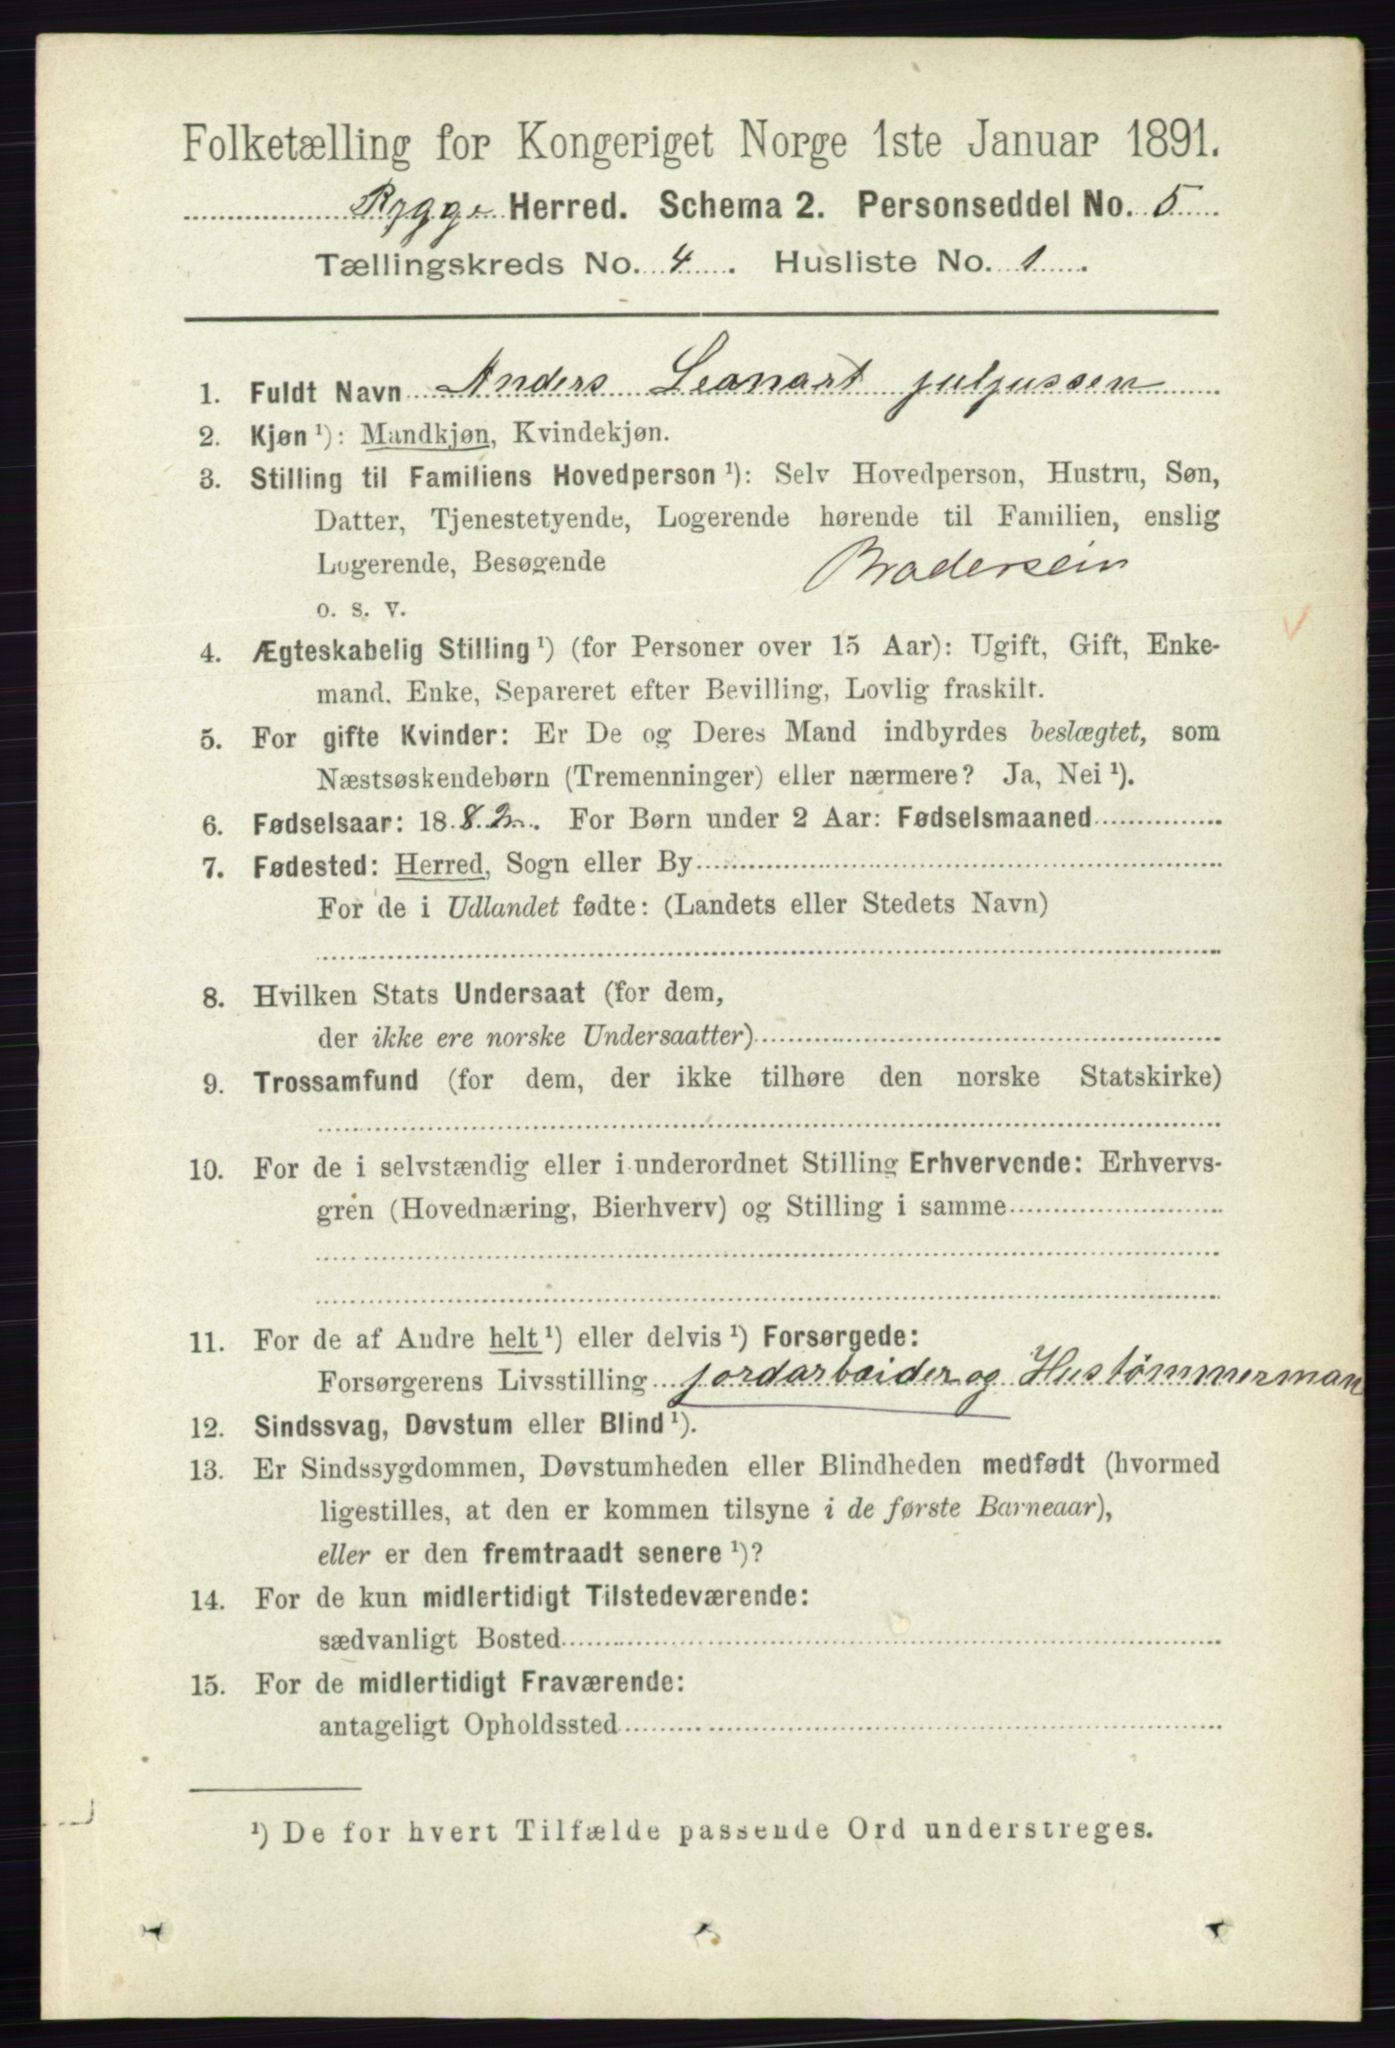 Folketælling for Kongeriget Norge 1ste Januar 1891.
Rygge Herred. Schema 2. Personseddel No. 5
Tællingskreds No. 4. Husliste No. 1
1. Fuldt Navn Anders Leonart juljussen
2. Kjøn ¹): Mandkjøn, Kvindekjøn.
3. Stilling til Familiens Hovedperson ¹): Selv Hovedperson, Hustru, Søn,
Datter, Tjenestetyende, Logerende hørende til Familien, enslig
Logerende, Besøgende Brodersøn
o. s. v.
4. Ægteskabelig Stilling ¹) (for Personer over 15 Aar): Ugift, Gift, Enke-
mand, Enke, Separeret efter Bevilling, Lovlig fraskilt.
5. For gifte Kvinder: Er De og Deres Mand indbyrdes beslægtet, som
Næstsøskendebørn (Tremenninger) eller nærmere? Ja, Nei ¹).
6. Fødselsaar: 1882. For Børn under 2 Aar: Fødselsmaaned
7. Fødested: Herred, Sogn eller By
For de i Udlandet fødte: (Landets eller Stedets Navn)
8. Hvilken Stats Undersaat (for dem,
der ikke ere norske Undersaatter)
9. Trossamfund (for dem, der ikke tilhøre den norske Statskirke)
10. For de i selvstændig eller i underordnet Stilling Erhvervende: Erhvervs-
gren (Hovednæring, Bierhverv) og Stilling i samme
11. For de af Andre helt ¹) eller delvis ¹) Forsørgede:
Forsørgerens Livsstilling jordarbeider og Hustømmerman
12. Sindssvag, Døvstum eller Blind ¹).
13. Er Sindssygdommen, Døvstumheden eller Blindheden medfødt (hvormed
ligestilles, at den er kommen tilsyne i de første Barneaar),
eller er den fremtraadt senere ¹)?
14. For de kun midlertidigt Tilstedeværende:
sædvanligt Bosted
15. For de midlertidigt Fraværende:
antageligt Opholdssted
¹) De for hvert Tilfælde passende Ord understreges.